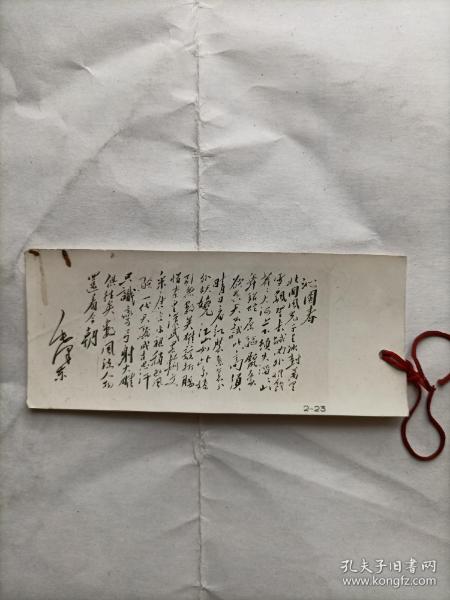 沁园春
北国风光千里冰封万里
雪飘望长城内外惟余
莽莽大河上下顿失滔滔山
舞银蛇原驰蜡象
欲与天公试比高须
晴日看红装素裹分
外妖娆江山如此多娇
引无数英雄竞折腰
惜秦皇汉武略输文
采唐宗宋祖稍逊风
骚一代天骄成吉思汗
只识弯弓射大雕
俱往矣数风流人物
还看今朝
毛泽东
2-23
孔夫子旧书网
www.kongfz.com